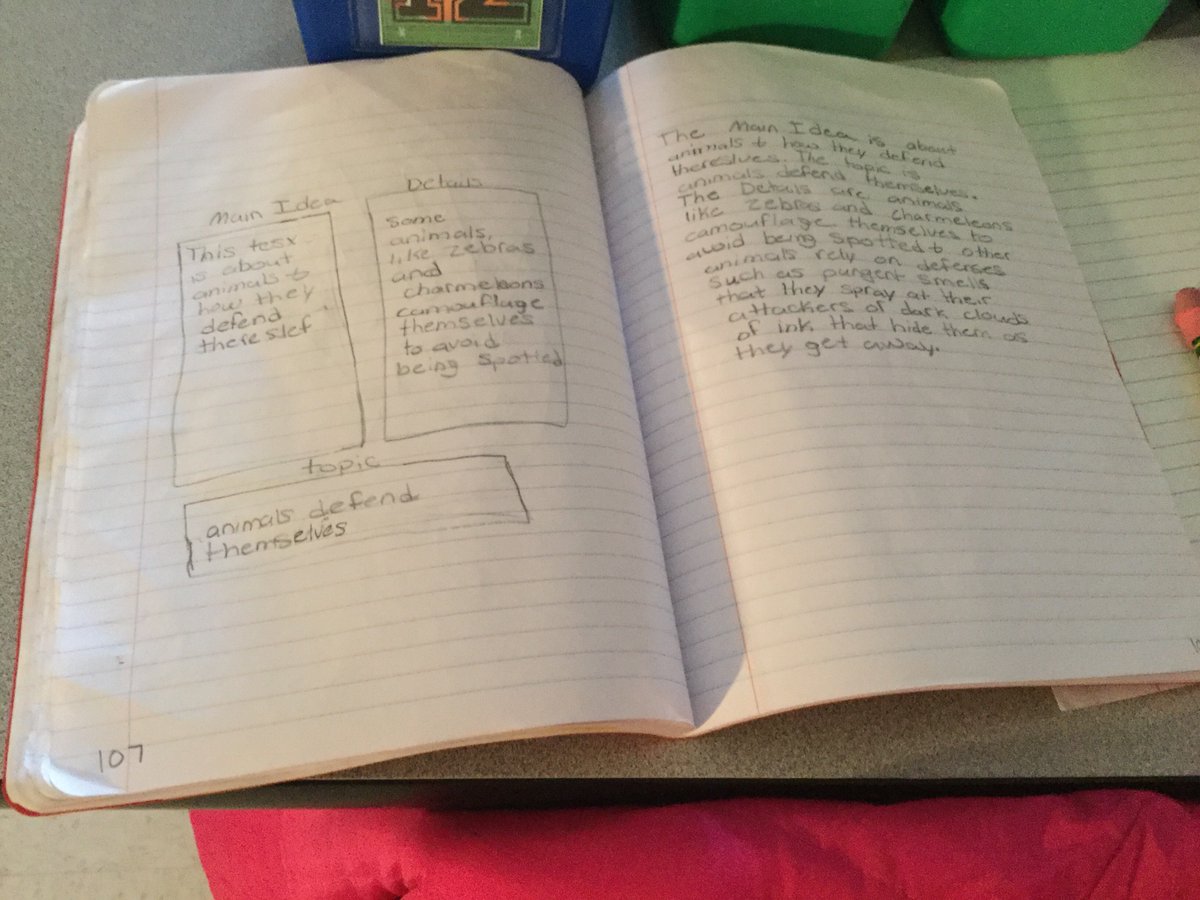 Main Idea
This tesx
is about
animals &
how they
defend
thereslef
Details
Some
animals,
like zebras
and
charmeleons
camouflage
themselves
to avoid
being spotted
topic
animals defend
themselves
107
The Main Idea is about
animals & how they defend
thereslves. The topic is
animals defend themselves.
The Details are animals
like zebras and charmeleons
camouflage themselves to
avoid being spotted & other
animals rely on defenses
such as pungent smells
that they spray at their
attackers of dark clouds
of ink that hide them as
they get away.